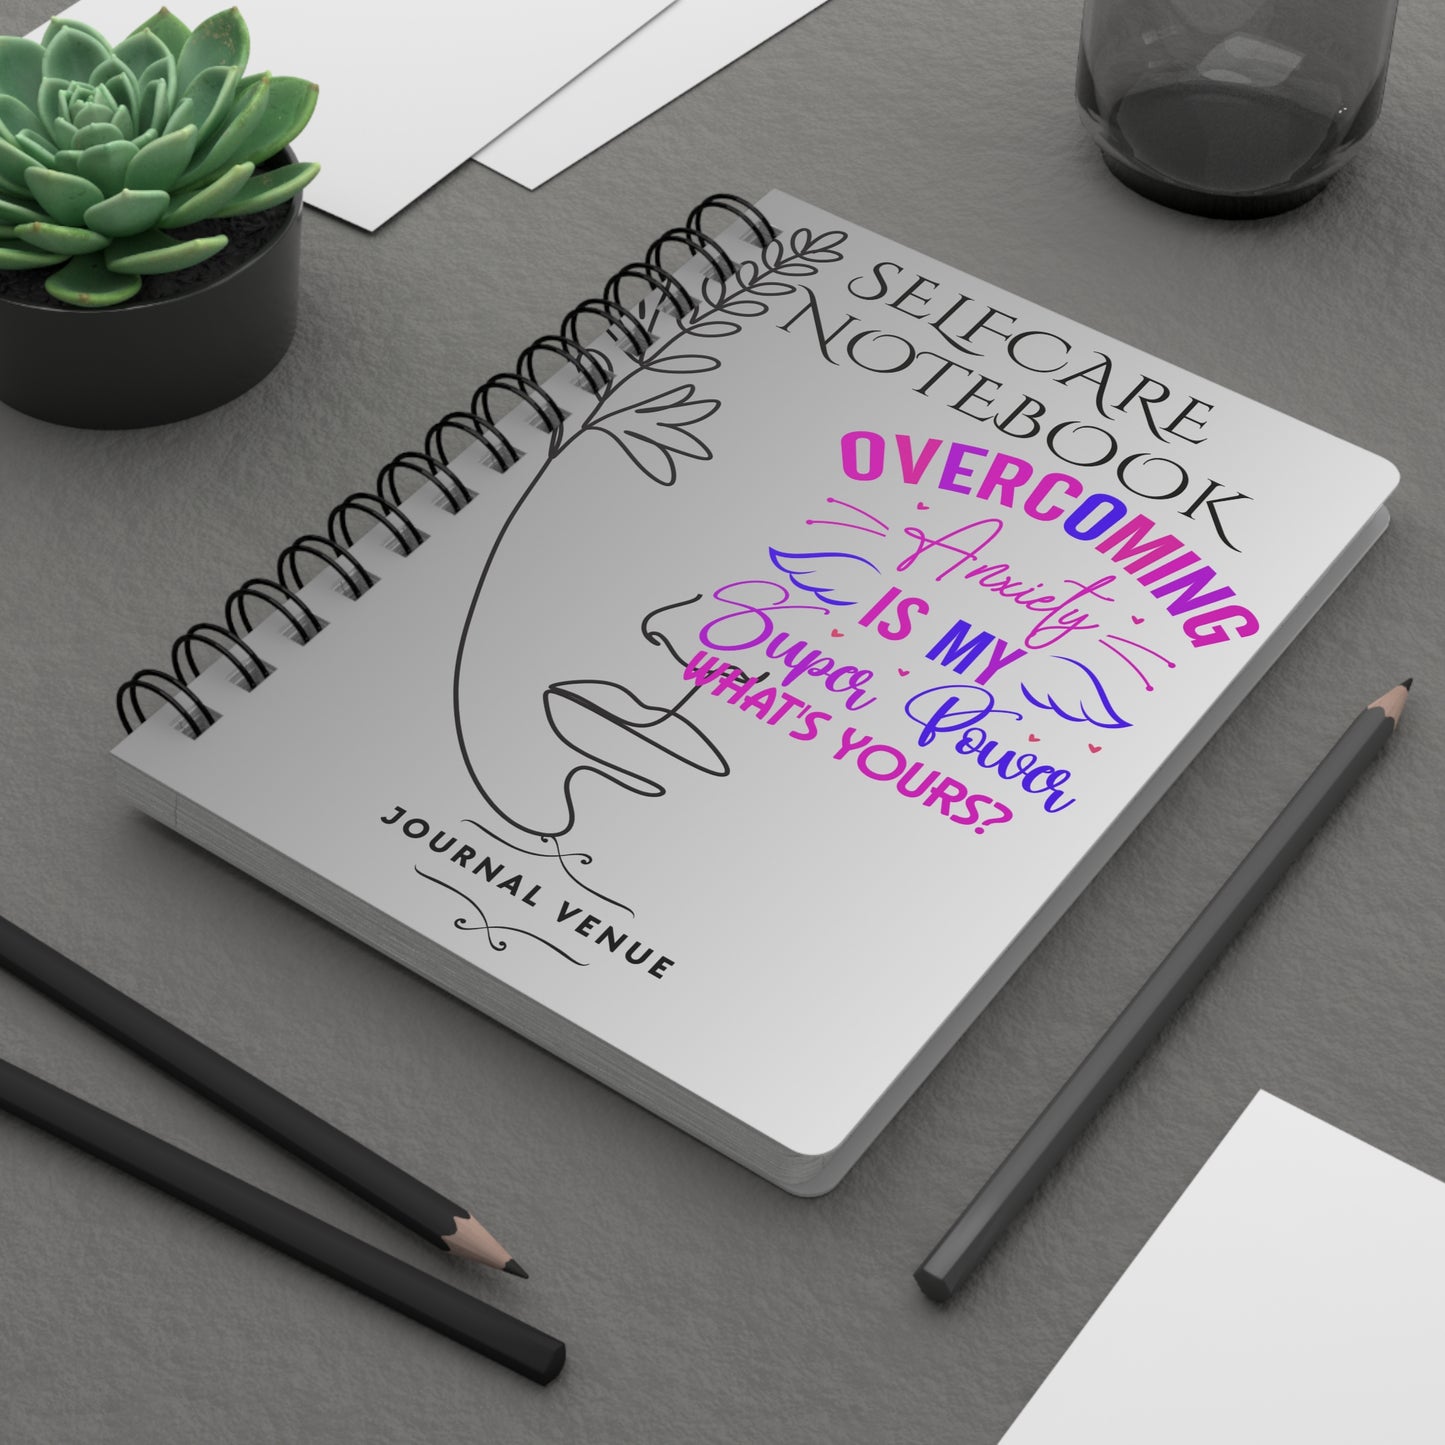 SELFCARE
NOTEBOOK
OVERCOMING
Anxiety
IS MY
Super Power
WHAT'S YOURS?
JOURNAL VENUE